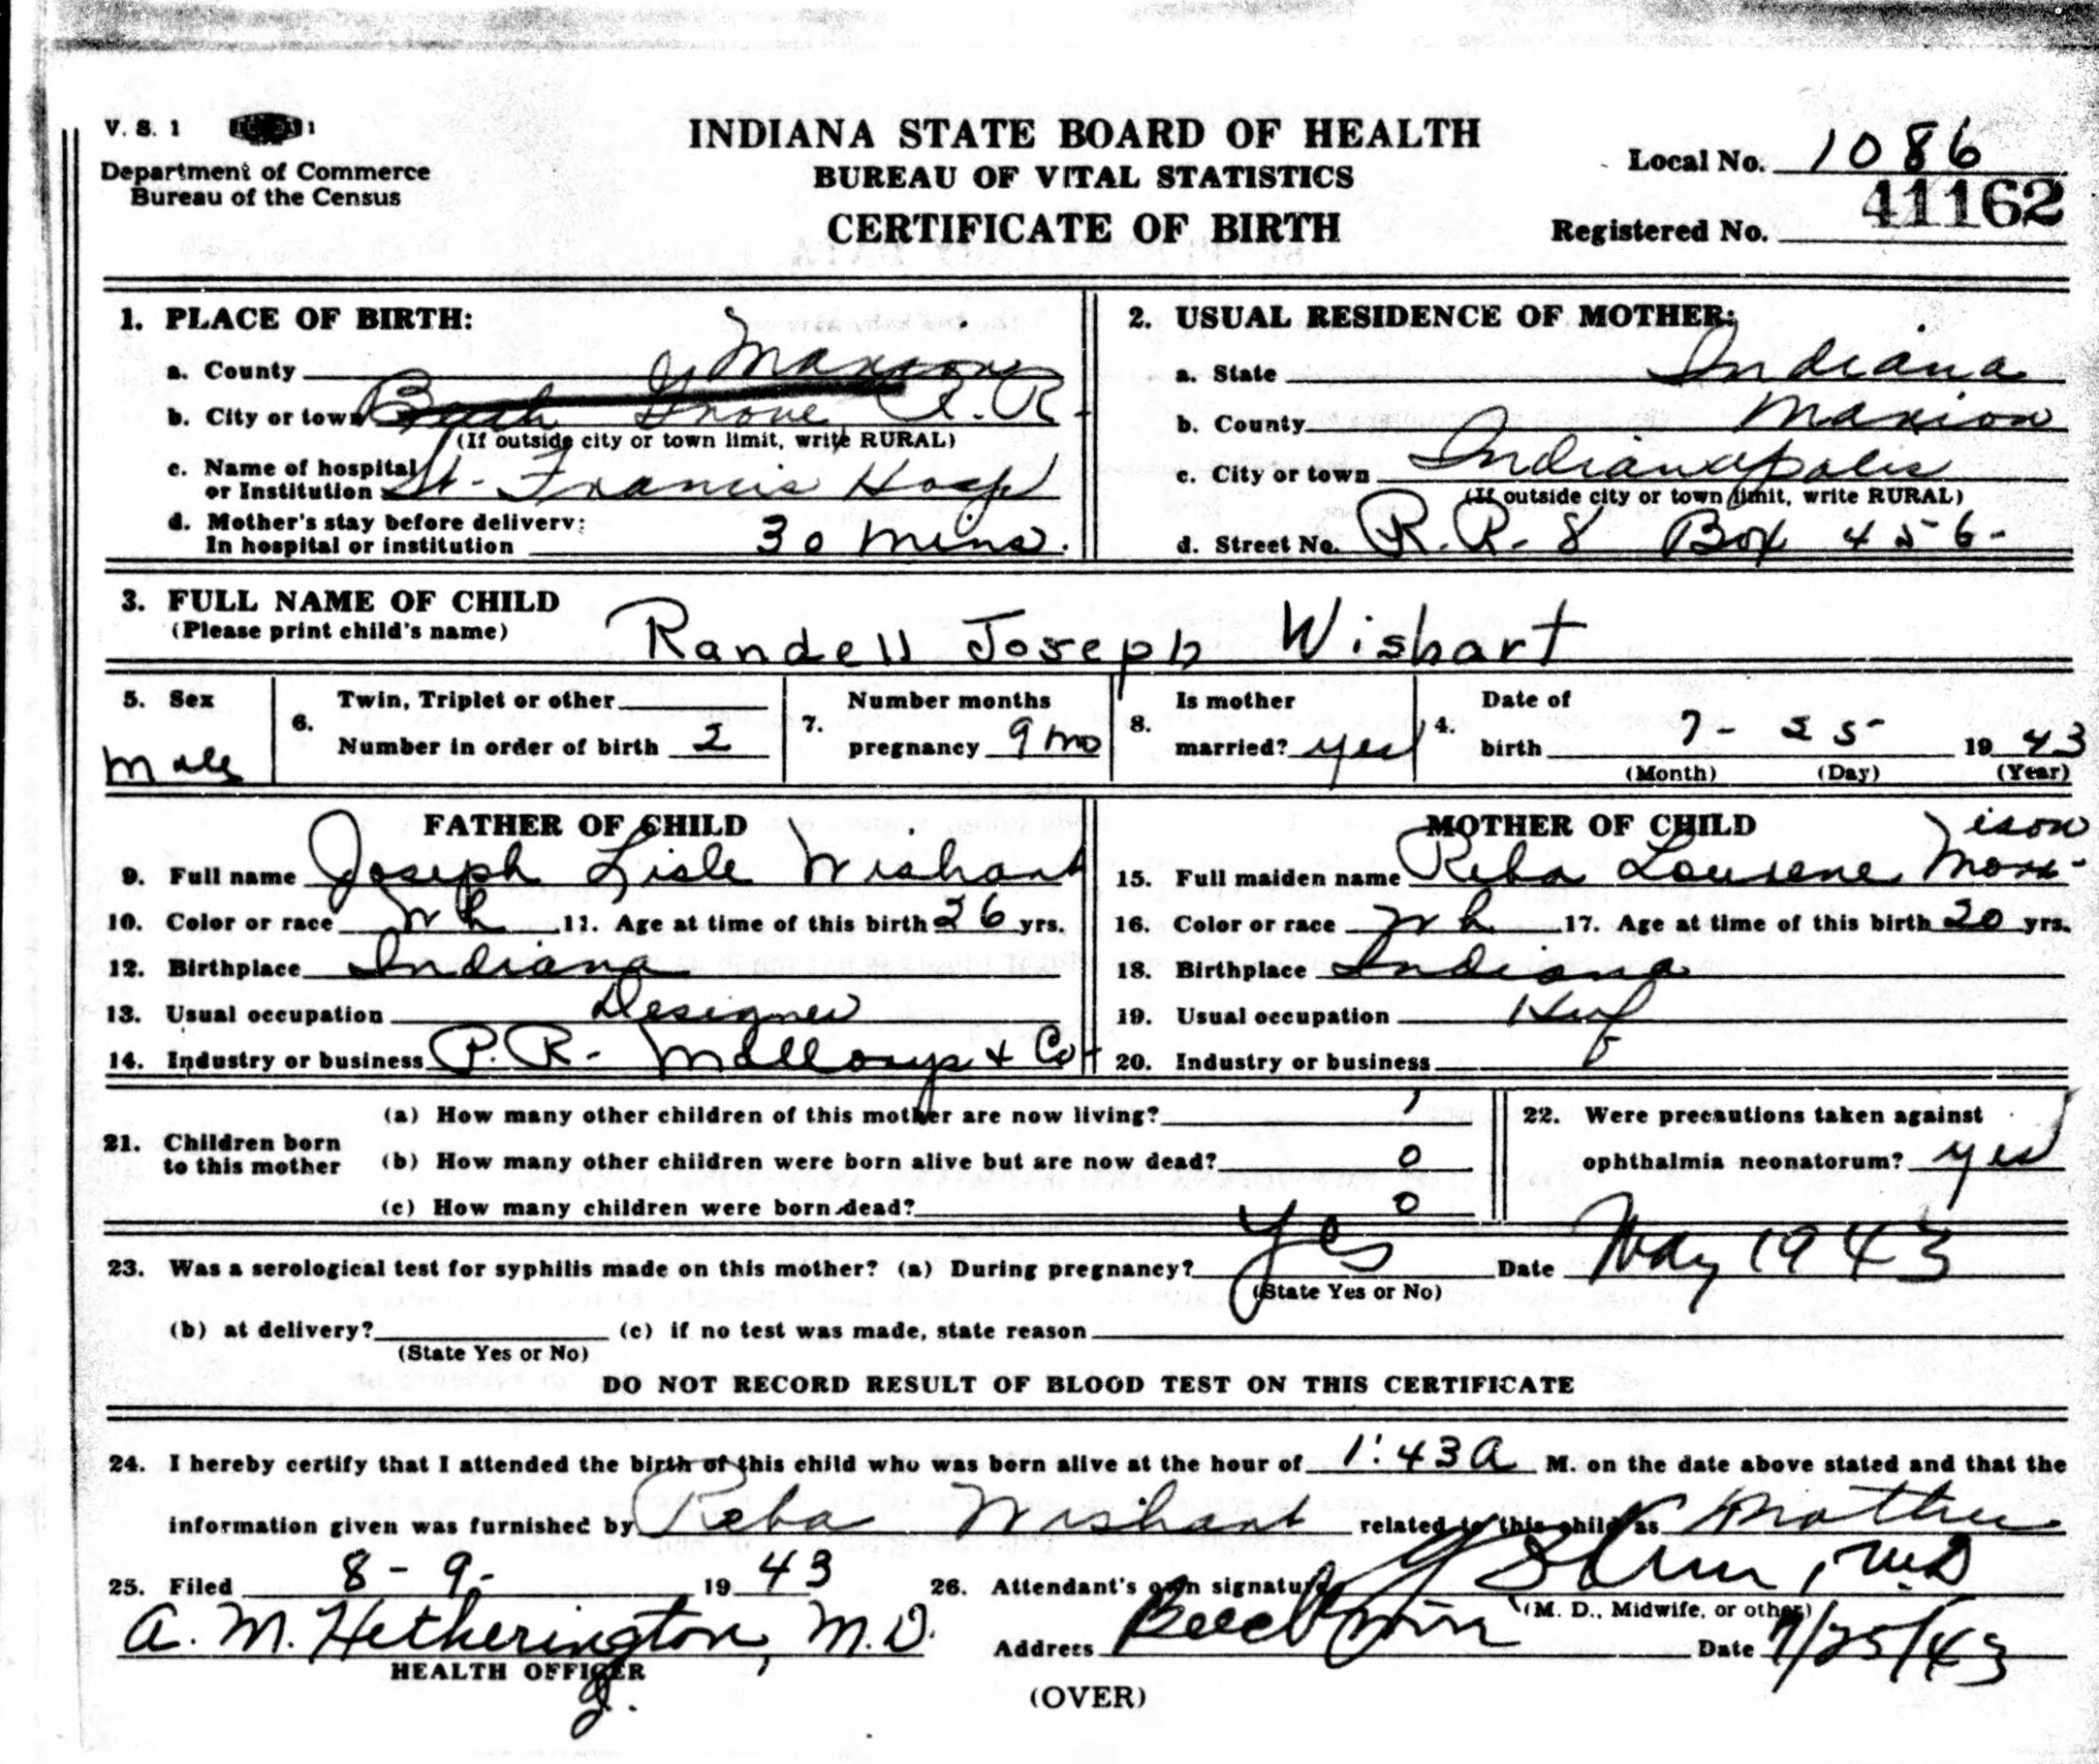 V. S. 1
Department of Commerce
Bureau of the Census
INDIANA STATE BOARD OF HEALTH
BUREAU OF VITAL STATISTICS
CERTIFICATE OF BIRTH
Local No. 1086
Registered No. 41162
1. PLACE OF BIRTH:
a. County Marion
b. City or town Grove R.R.
(If outside city or town limit, write RURAL)
c. Name of hospital
or Institution St. Francis Hosp
d. Mother's stay before delivery:
In hospital or institution 30 mins.
2. USUAL RESIDENCE OF MOTHER:
a. State Indiana
b. County Marion
c. City or town Indianapolis
(If outside city or town limit, write RURAL)
d. Street No. R.R. 8 Box 456-
3. FULL NAME OF CHILD Randell Joseph Wishart
(Please print child's name)
5. Sex
Male
6. Twin, Triplet or other
Number in order of birth 2
7. Number months
pregnancy 9 mo
8. Is mother
married? yes
4. Date of
birth 7 - 25 - 1943
(Month) (Day) (Year)
FATHER OF CHILD
9. Full name Joseph Lisle Wishart
10. Color or race Wh 11. Age at time of this birth 26 yrs.
12. Birthplace Indiana
13. Usual occupation Designer
14. Industry or business P.R. Mallorys + Co
MOTHER OF CHILD
15. Full maiden name Reba Lourene Morrison
16. Color or race Wh 17. Age at time of this birth 20 yrs.
18. Birthplace Indiana
19. Usual occupation Hwf
20. Industry or business
21. Children born
to this mother
(a) How many other children of this mother are now living? 1
(b) How many other children were born alive but are now dead? 0
(c) How many children were born dead? 0
22. Were precautions taken against
ophthalmia neonatorum? yes
23. Was a serological test for syphilis made on this mother? (a) During pregnancy? Yes Date May 1943
(State Yes or No)
(b) at delivery? (c) if no test was made, state reason
(State Yes or No)
DO NOT RECORD RESULT OF BLOOD TEST ON THIS CERTIFICATE
24. I hereby certify that I attended the birth of this child who was born alive at the hour of 1:43 A M. on the date above stated and that the
information given was furnished by Reba Wishart related to this child as Mother
25. Filed 8 - 9 - 1943
A. M. Hetherington, M.D.
HEALTH OFFICER
26. Attendant's own signature M.D
(M. D., Midwife, or other)
Address Beech Grove Date 7/25/43
(OVER)